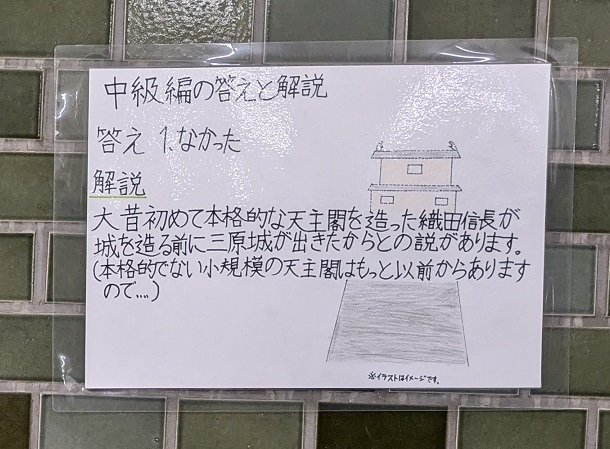 中級編の答えと解説
答え 1、なかった
解説
大昔初めて本格的な天主閣を造った織田信長が
城を造る前に三原城が出きたからとの説があります。
(本格的でない小規模の天主閣はもっと以前からあります
ので....)
※イラストはイメージです。